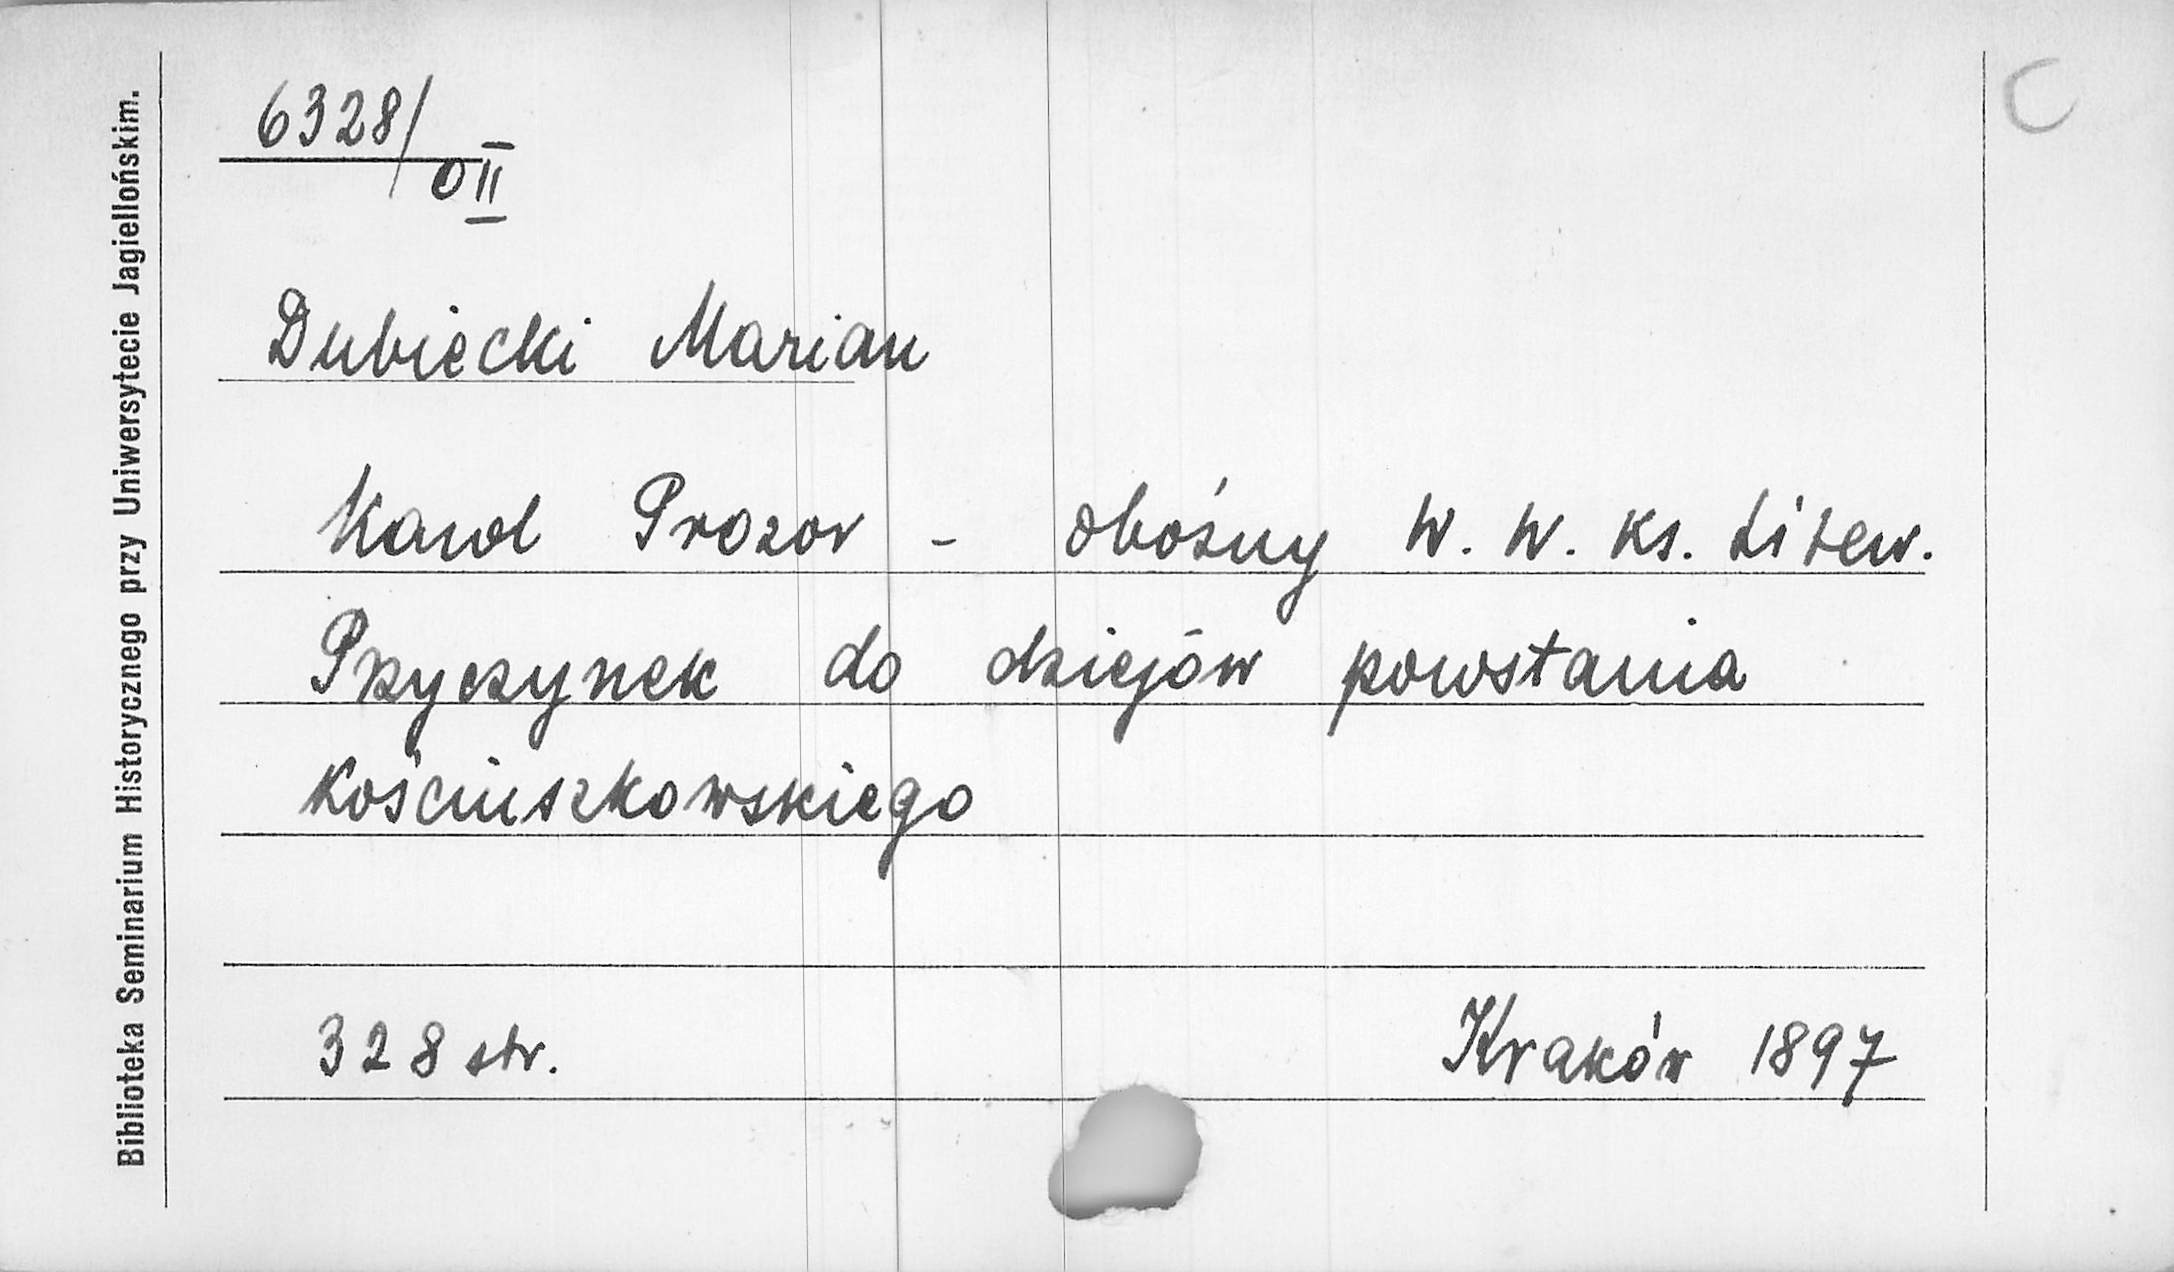 C
6328/
OII
Dubiecki Marian
Karol Prozor - oboźny W. W. Ks. Litew.
Przyczynek do dziejów powstania
Kościuszkowskiego
328 str. Kraków 1897
Biblioteka Seminarium Historycznego przy Uniwersytecie Jagiellońskim.